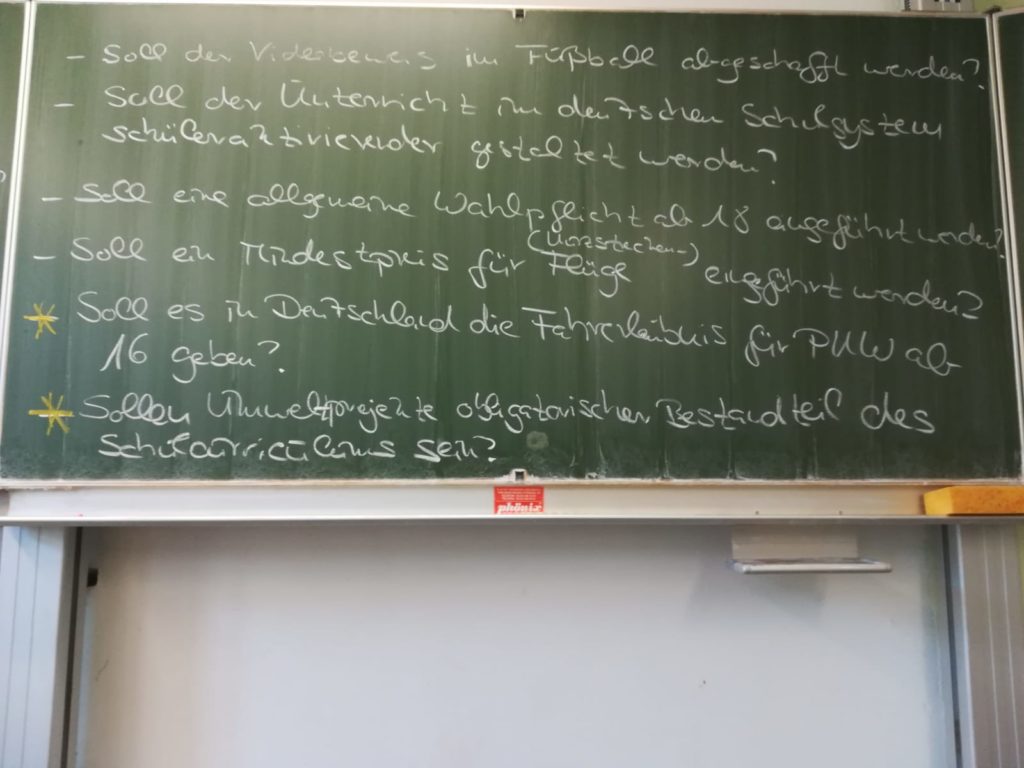 - Soll der Videobeweis im Fußball abgeschafft werden?
- Soll der Unterricht im deutschen Schulsystem
schüleraktivierender gestaltet werden?
- Soll eine allgemeine Wahlpflicht ab 18 eingeführt werden?
(Kurzstrecken-)
- Soll ein Mindestpreis für Flüge eingeführt werden?
* Soll es in Deutschland die Fahrerlaubnis für PKW ab
16 geben?
* Sollen Umweltprojekte obligatorischer Bestandteil des
Schulcurriculums sein?
phönix